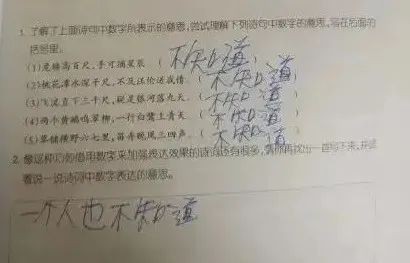 1. 了解了上面诗句中数字所表示的意思,尝试理解下列诗句中数字的意思,写在后面的
括号里。
(1)危楼高百尺,手可摘星辰 (不知道)
(2)桃花潭水深千尺,不及汪伦送我情。(不知道)
(3)飞流直下三千尺,疑是银河落九天。(不知道)
(4)两个黄鹂鸣翠柳,一行白鹭上青天 (不知道)
(5)草铺横野六七里,笛弄晚风三四声。(不知道)
2. 像这种巧妙借用数字来加强表达效果的诗词还有很多,请你再找出一首写下来,并试
着说一说诗词中数字表达的意思。
一个人也不知道